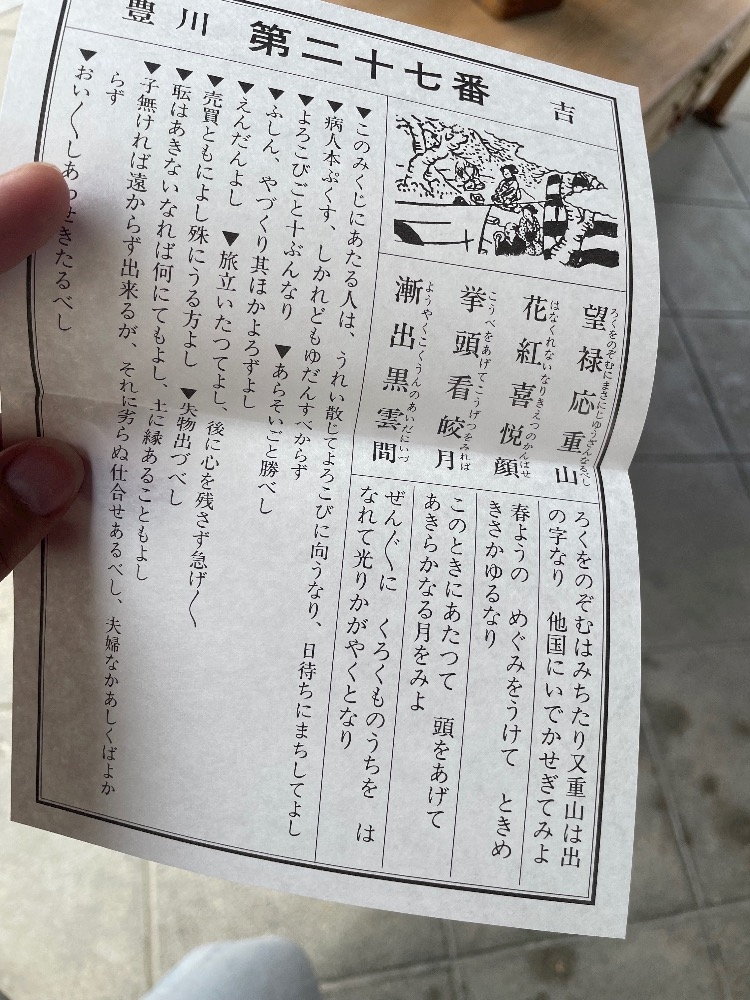 豊川 第二十七番 吉
望禄応重山
ろくをのぞむにまさにじゆうざんなるべし
花紅喜悦顔
はなくれないなりきえつのかんばせ
挙頭看皎月
こうべをあげてこうげつをみれば
漸出黒雲間
ようやくこくうんのあいだにいづ
ろくをのぞむはみちたり又重山は出
の字なり 他国にいでかせぎてみよ
春ようの めぐみをうけて ときめ
きさかゆるなり
このときにあたつて 頭をあげて
あきらかなる月をみよ
ぜん〴〵に くろくものうちを は
なれて光りかがやくとなり
▼このみくじにあたる人は、うれい散じてよろこびに向うなり、日待ちにまちしてよし
▼病人本ぷくす、しかれどもゆだんすべからず
▼よろこびごと十ぶんなり ▼あらそいごと勝べし
▼ふしん、やづくり其ほかよろずよし
▼えんだんよし ▼旅立いたつてよし、後に心を残さず急げ〳〵
▼売買ともによし殊にうる方よし ▼失物出づべし
▼耘はあきないなれば何にてもよし、土に縁あることもよし
▼子無ければ遠からず出来るが、それに劣らぬ仕合せあるべし、夫婦なかあしくばよか
らず
▼おい〳〵しあわせきたるべし